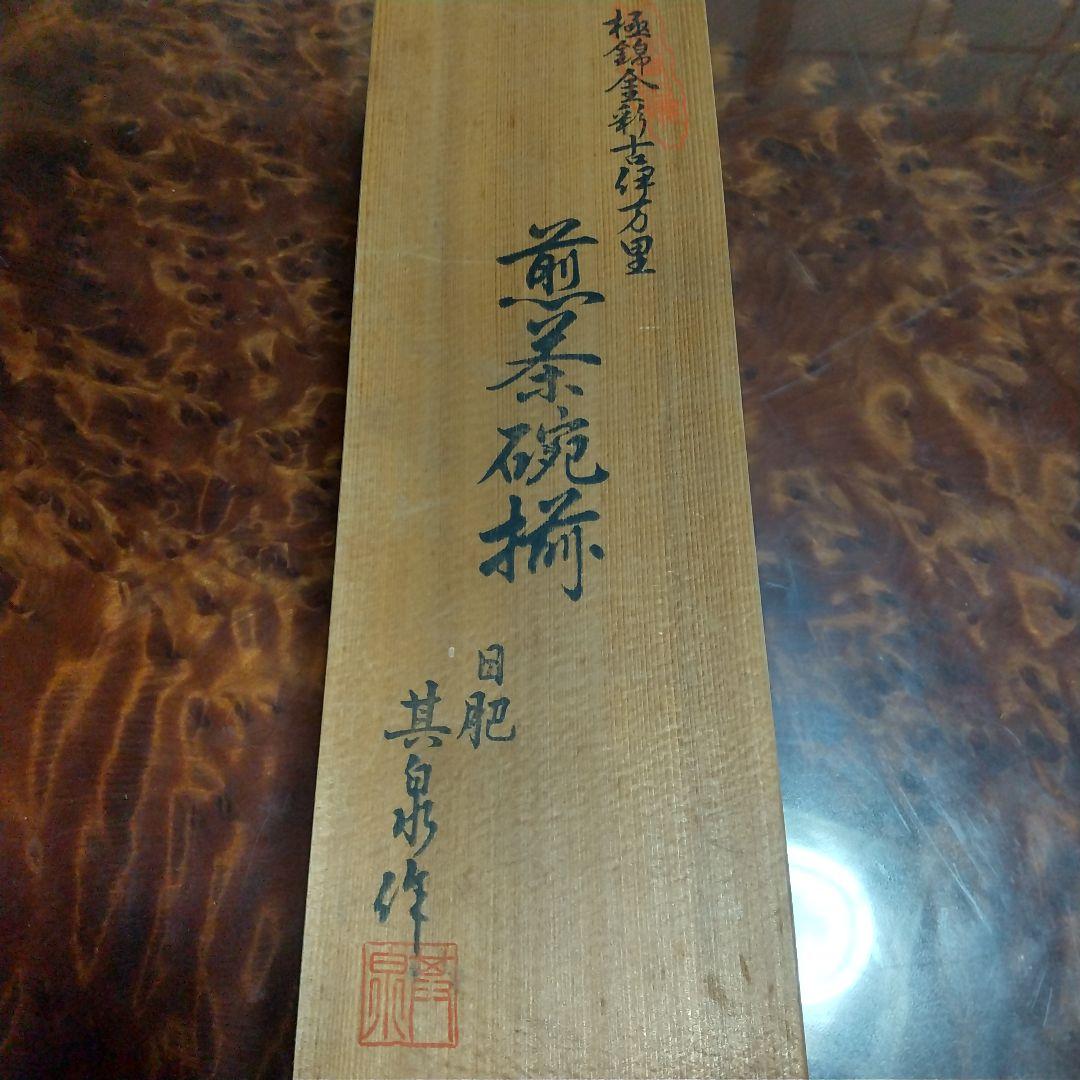 極錦金彩古伊万里
煎茶碗揃
日肥
其泉作
其泉